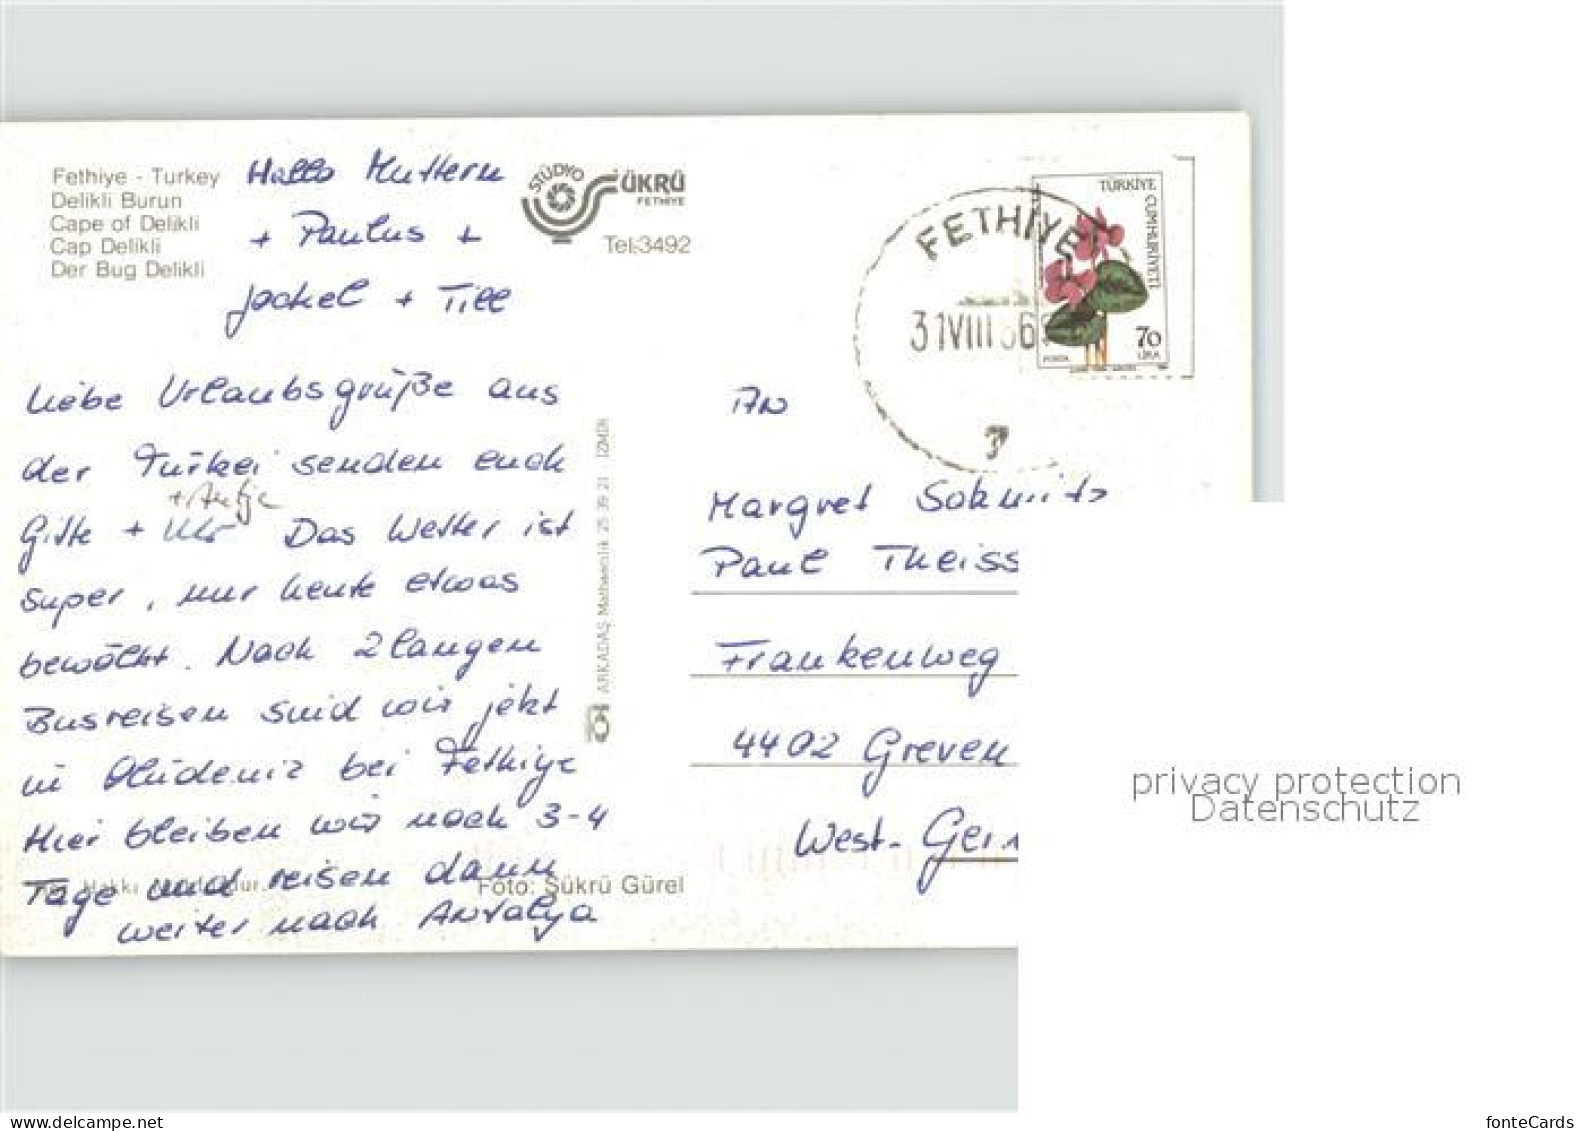 Fethiye - Turkey
Delikli Burun
Cape of Delikli
Cap Delikli
Der Bug Delikli
Hallo Muttern
+ Paulus +
Jockel + Till
STÜDYO ŞÜKRÜ
FETHİYE
Tel:3492
Liebe Urlaubsgrüße aus
der Türkei senden euch
+ Antje
Gitte + Das Wetter ist
super, nur heute etwas
bewölkt. Nach 2 langen
Busreisen sind wir jetzt
in Ölüdeniz bei Fethiye
Hier bleiben wir noch 3-4
Tage und reisen dann
weiter nach Antalya
Hakkı
Foto: Şükrü Gürel
ARKADAŞ Matbaacılık 25 39 21 İZMİR
FETHİYE
31 VIII
TÜRKİYE CUMHURİYETİ
70
LİRA
POSTA
An
Margret Schmitz
Paul Theiss
Frankenweg
4402 Greven
West-Ger
privacy protection
Datenschutz
www.delcampe.net
fonteCards